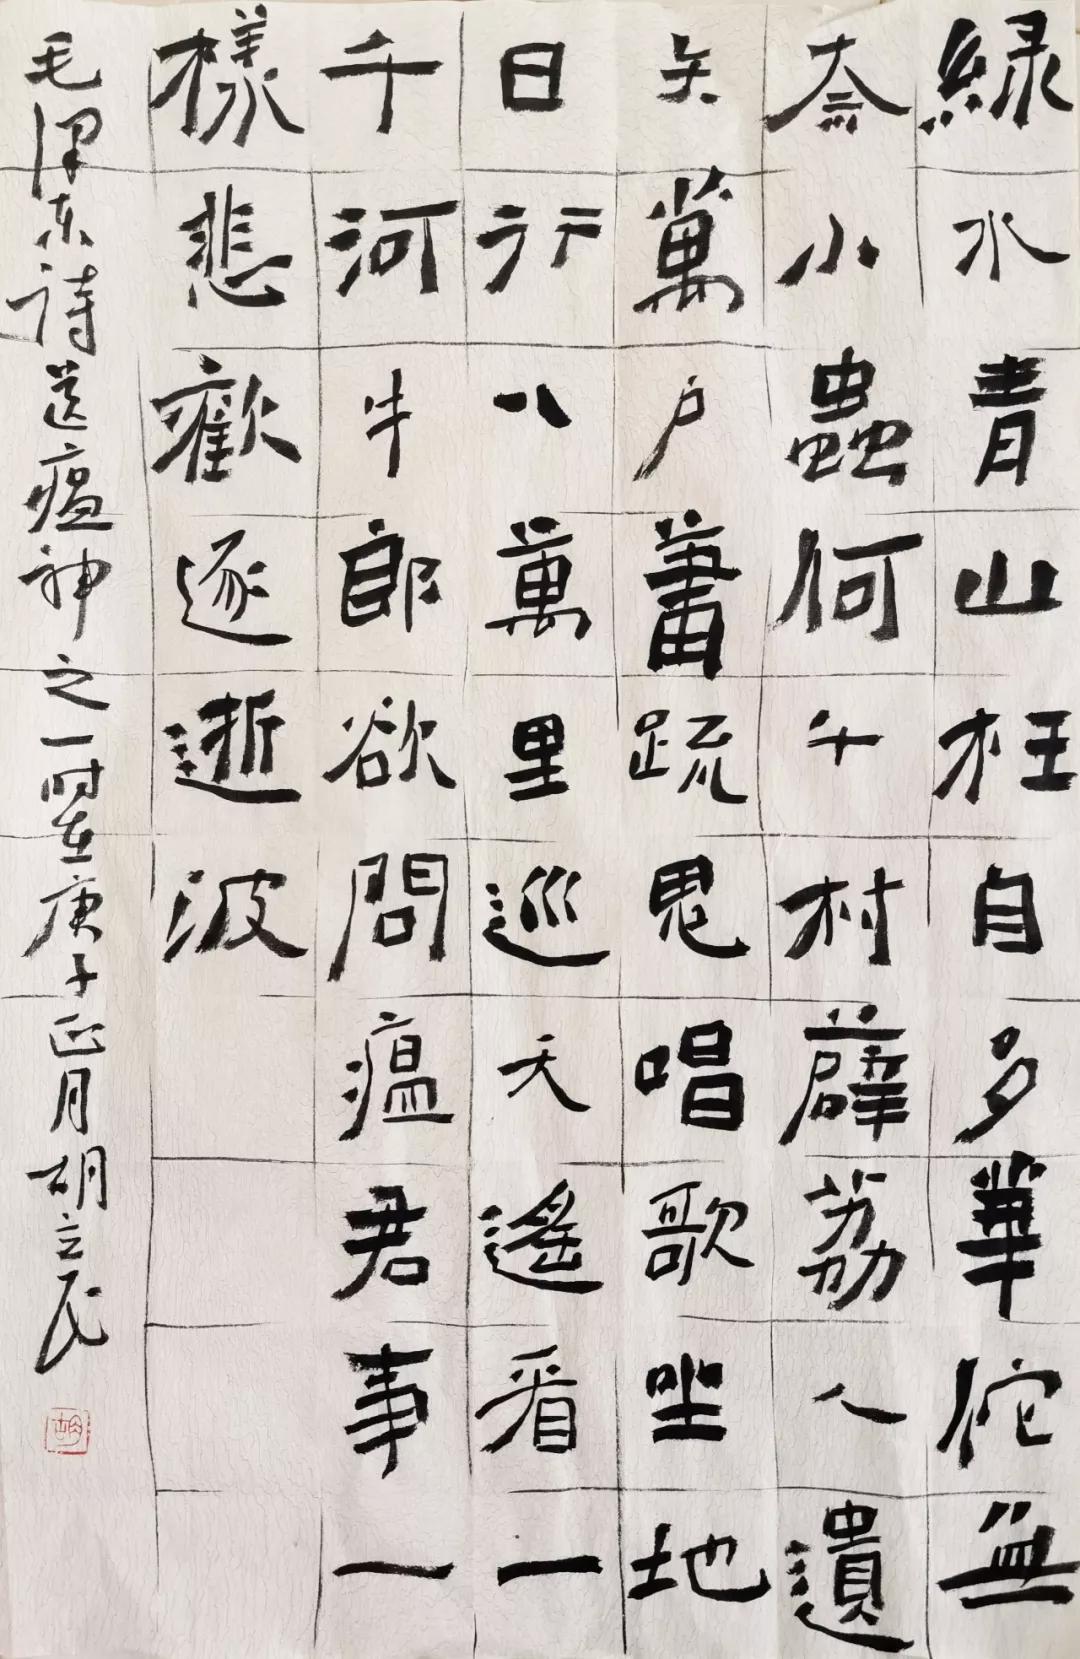 緑水青山枉自多華佗無
奈小蟲何千村薜荔人遺
矢萬户蕭疏鬼唱歌坐地
日行八萬里巡天遙看一
千河牛郎欲問瘟君事一
樣悲歡逐逝波
毛澤东诗送瘟神之一时在庚子正月胡立民
胡